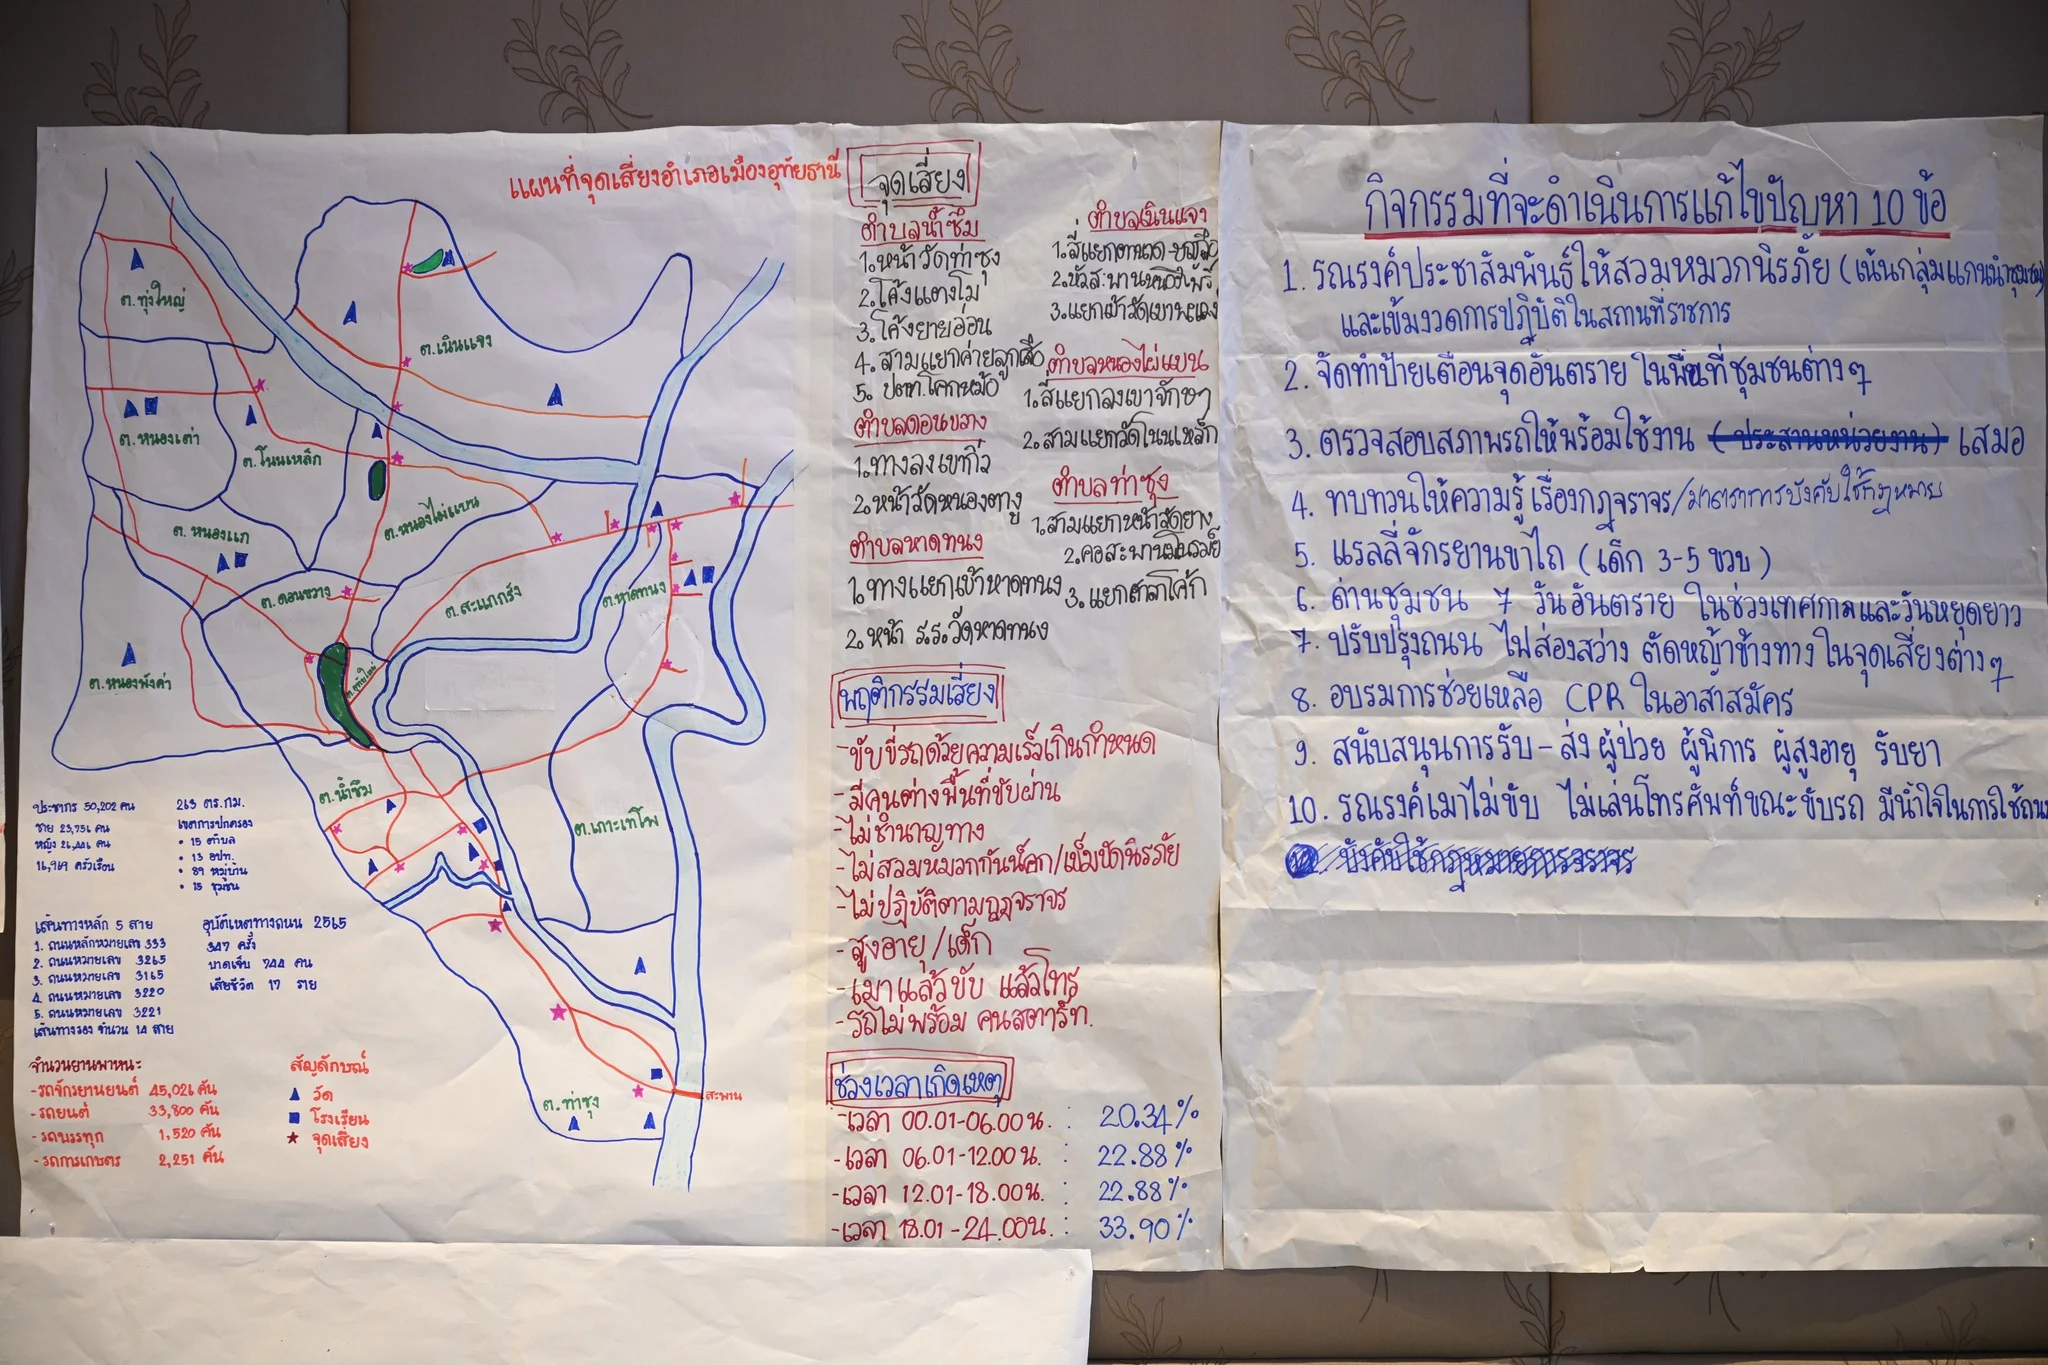 แผนที่จุดเสี่ยงอำเภอเมืองอุทัยธานี
ต.ทุ่งใหญ่
ต.เนินแจง
ต.หนองเต่า
ต.โนนเหล็ก
ต.หนองแก
ต.หนองไผ่แบน
ต.ดอนขวาง
ต.สะแกกรัง
ต.หาดทนง
ต.หนองพังค่า
ต.อุทัยใหม่
ต.น้ำซึม
ต.เกาะเทโพ
ต.ท่าซุง
สะพาน
ประชากร 50,202 คน
ชาย 23,756 คน
หญิง 26,446 คน
16,969 ครัวเรือน
263 ตร.กม.
เขตการปกครอง
• 15 ตำบล
• 13 อปท.
• 89 หมู่บ้าน
• 15 ชุมชน
เส้นทางหลัก 5 สาย
1. ถนนหลักหมายเลข 333
2. ถนนหมายเลข 3265
3. ถนนหมายเลข 3165
4. ถนนหมายเลข 3220
5. ถนนหมายเลข 3221
เส้นทางรอง จำนวน 14 สาย
อุบัติเหตุทางถนน 2565
347 ครั้ง
บาดเจ็บ 744 คน
เสียชีวิต 17 ราย
จำนวนยานพาหนะ
-รถจักรยานยนต์ 45,026 คัน
-รถยนต์ 33,800 คัน
-รถบรรทุก 1,520 คัน
-รถการเกษตร 2,251 คัน
สัญลักษณ์
วัด
โรงเรียน
จุดเสี่ยง
จุดเสี่ยง
ตำบลน้ำซึม
1.หน้าวัดท่าซุง
2.โค้งแตงโม
3.โค้งยายอ่อน
4.สามแยกค่ายลูกเสือ
5. ปตท.โคกหม้อ
ตำบลดอนขวาง
1.ทางลงเขากิ่ว
2.หน้าวัดหนองตางู
ตำบลหาดทนง
1.ทางแยกเข้าหาดทนง
2.หน้า ร.ร.วัดหาดทนง
ตำบลเนินแจง
1.สี่แยก
2.หัวสะพาน
3.แยกเข้าวัดเขาพะแวง
ตำบลหนองไผ่แบน
1.สี่แยกลงเขาจักษา
2.สามแยกวัดโนนเหล็ก
ตำบลท่าซุง
1.สามแยกหน้าวัดยาง
2.คอสะพานมโนรมย์
3.แยกศาลาโค้ก
พฤติกรรมเสี่ยง
-ขับขี่รถด้วยความเร็วเกินกำหนด
-มีคนต่างพื้นที่ขับผ่าน
-ไม่ชำนาญทาง
-ไม่สวมหมวกกันน็อก/เข็มขัดนิรภัย
-ไม่ปฏิบัติตามกฎจราจร
-สูงอายุ/เด็ก
-เมาแล้วขับ แล้วโทร
-รถไม่พร้อม คนสตาร์ท.
ช่วงเวลาเกิดเหตุ
-เวลา 00.01-06.00 น. : 20.34%
-เวลา 06.01-12.00 น. : 22.88%
-เวลา 12.01-18.00 น. : 22.88%
-เวลา 18.01-24.00 น. : 33.90%
กิจกรรมที่จะดำเนินการแก้ไขปัญหา 10 ข้อ
1. รณรงค์ประชาสัมพันธ์ให้สวมหมวกนิรภัย (เน้นกลุ่มแกนนำชุมชน)
และเข้มงวดการปฏิบัติในสถานที่ราชการ
2. จัดทำป้ายเตือนจุดอันตราย ในพื้นที่ชุมชนต่างๆ
3. ตรวจสอบสภาพรถให้พร้อมใช้งาน (ประสานหน่วยงาน) เสมอ
4. ทบทวนให้ความรู้ เรื่องกฎจราจร/มาตรการบังคับใช้กฎหมาย
5. แรลลี่จักรยานขาไถ (เด็ก 3-5 ขวบ)
6. ด่านชุมชน 7 วันอันตราย ในช่วงเทศกาลและวันหยุดยาว
7. ปรับปรุงถนน ไฟส่องสว่าง ตัดหญ้าข้างทาง ในจุดเสี่ยงต่างๆ
8. อบรมการช่วยเหลือ CPR ในอาสาสมัคร
9. สนับสนุนการรับ-ส่ง ผู้ป่วย ผู้พิการ ผู้สูงอายุ รับยา
10. รณรงค์เมาไม่ขับ ไม่เล่นโทรศัพท์ขณะขับรถ มีน้ำใจในการใช้ถนน
บังคับใช้กฎหมายการจราจร